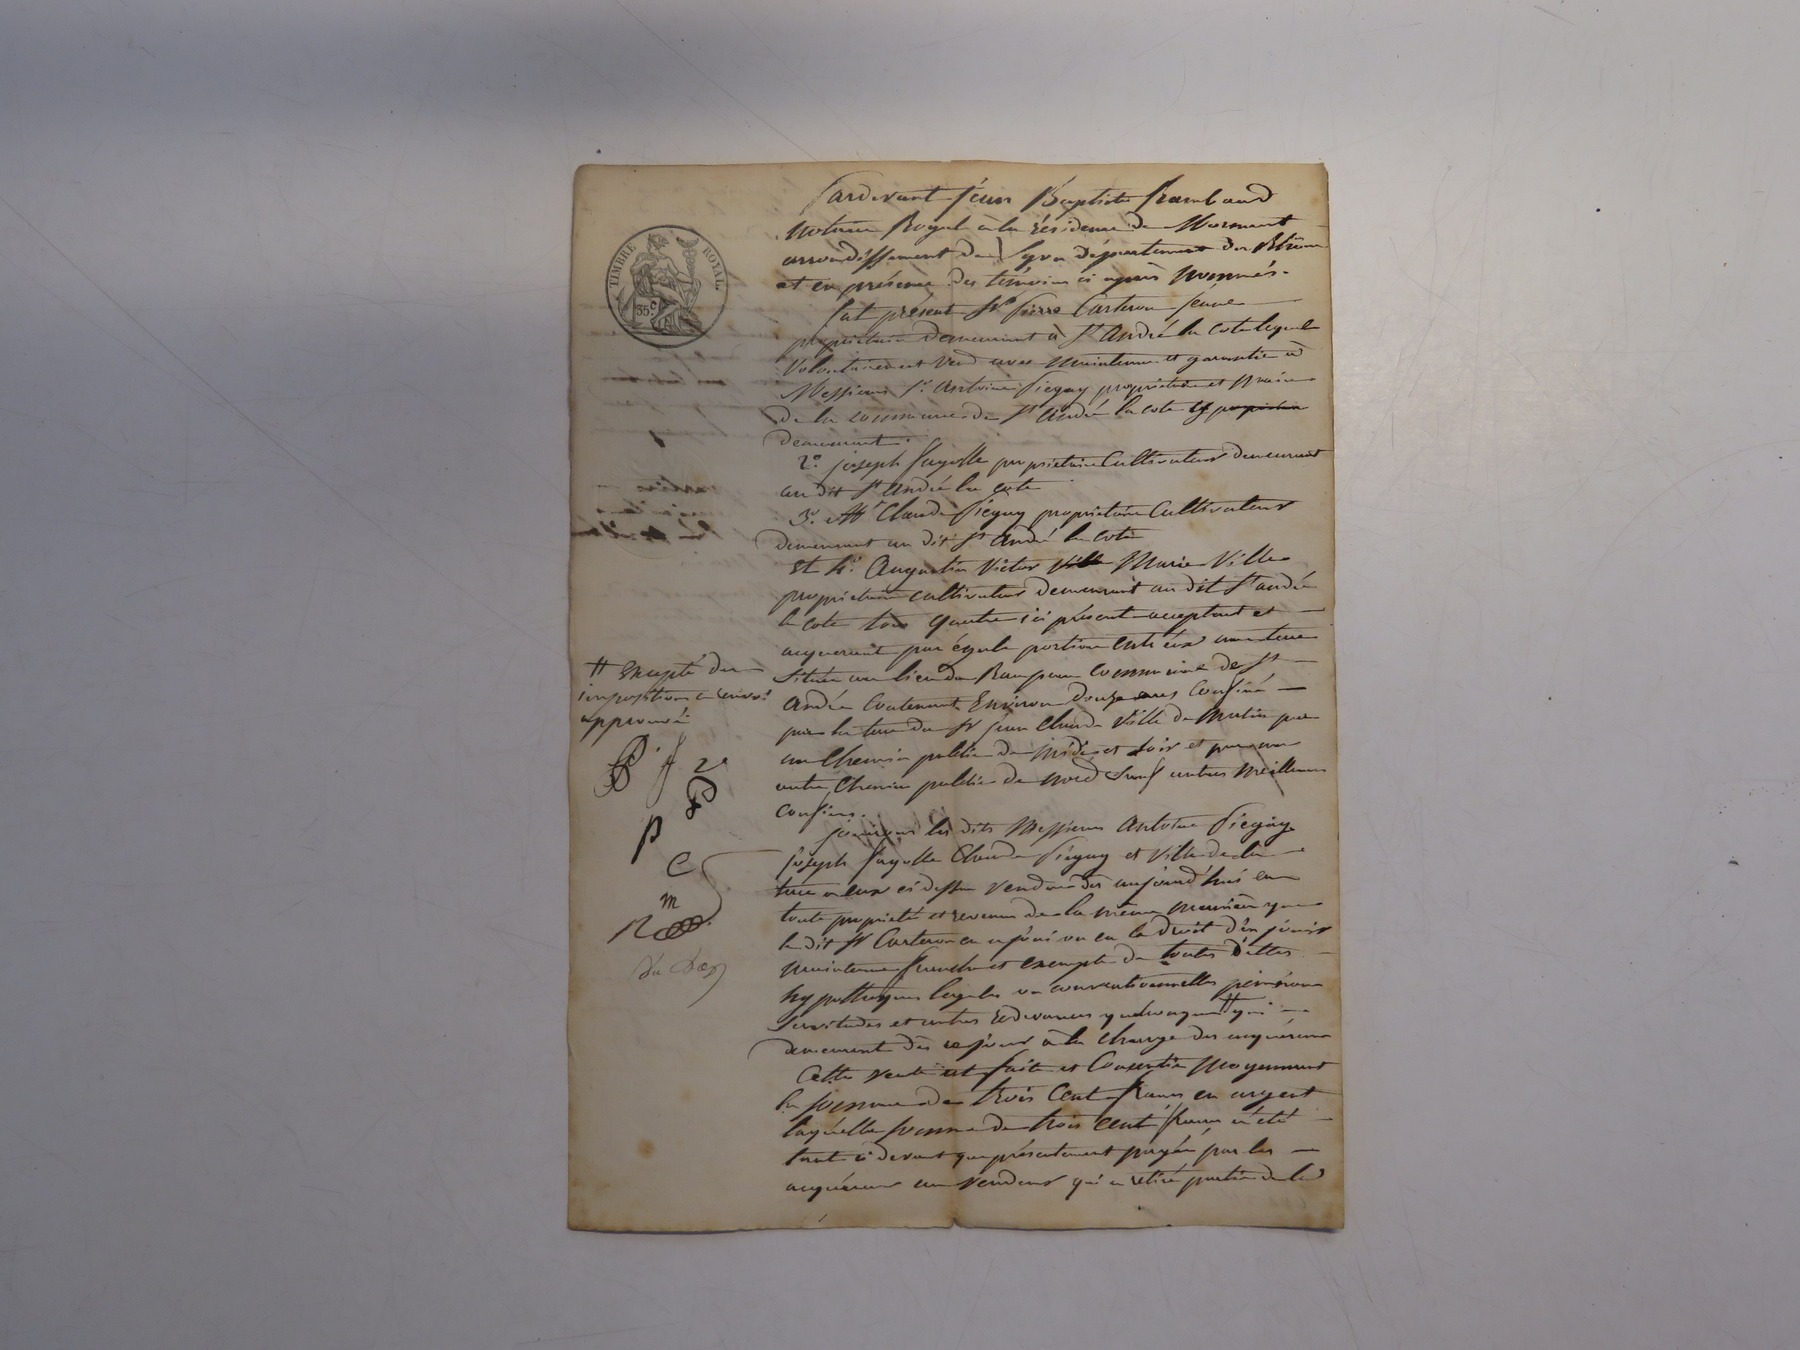 Pardevant Jean Baptiste Rambaud
Notaire Royal à la résidence de Mornant
arrondissement de Lyon département du Rhône
et en présence des témoins ci après nommés.
fut présent Sr pierre Carteron jeune
propriétaire demeurant à St André la cote lequel
Volontairement Vend avec maintenue et garantie à
Messieurs 1o. Antoine Piegay propriétaire et Maire
de la commune de St André la cote
demeurant.
2o. joseph fayolle propriétaire Cultivateur demeurant
au dit St André la cote
3o. Claude Piégay propriétaire Cultivateur
demeurant au dit St André la cote
Et 4o. Augustin Victor Marie Ville
propriétaire cultivateur demeurant au dit St andré
la cote tous quatre ici présent acceptant et
acquerant par égale portion entr'eux une terre
Située au lieu du commune de St
André Contenant Environ douze ares Confiné
par la terre du Sr jean Claude Ville de matin par
un Chemin public de midi et soir et par un
autre Chemin public de nord Sauf autres meilleurs
confins.
jouiront les dits Messieurs Antoine Piegay
joseph fayolle Claude Piégay et Ville de la
terre a eux ci dessus vendue dès aujourd'hui en
toute propriété et revenu de la même manière que
le dit Sr Carteron en a joui ou eu le droit d'en jouir
maintenue franche et exempte de toutes dettes
hypothèques legales ou conventionnelles pensions
Servitudes et autres redevances quelconques # qui
demeurent dès ce jour à la charge des acquéreurs
Cette vente est faite et Consentie moyennant
la somme de trois Cent francs en argent
laquelle somme de trois Cent francs a été
tant ci devant que présentement payée par les
acquéreurs au vendeur qui a retiré partie de la
TIMBRE ROYAL.
35c
# Excepté des
impositions
approuvé
B. f
p
C
m
R